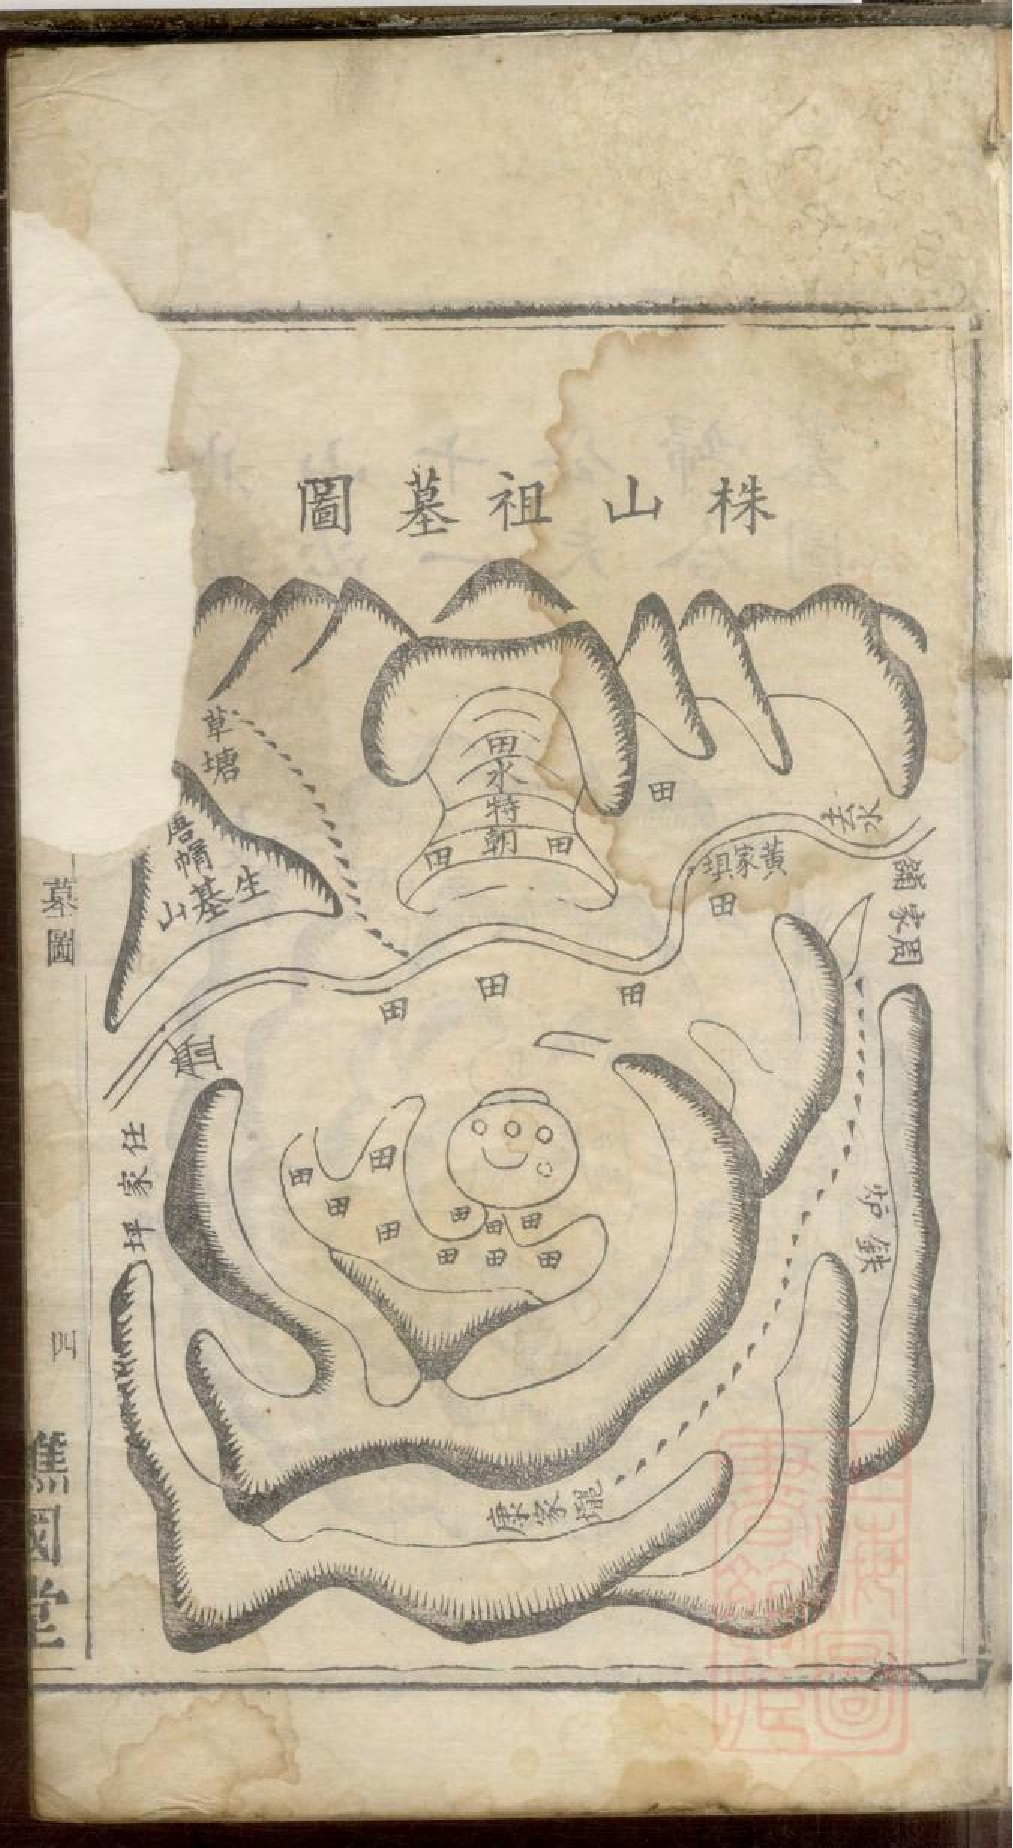 株山祖墓圖
草塘
唐帽山
生基
田
水
特
朝
田
田
田
來水
黃家垻
田
周家舖
田
田
田
任家坪
田
田
田
田
田
田
田
田
田
田
鉄炉
康家壠
墓圖
四
譙國堂